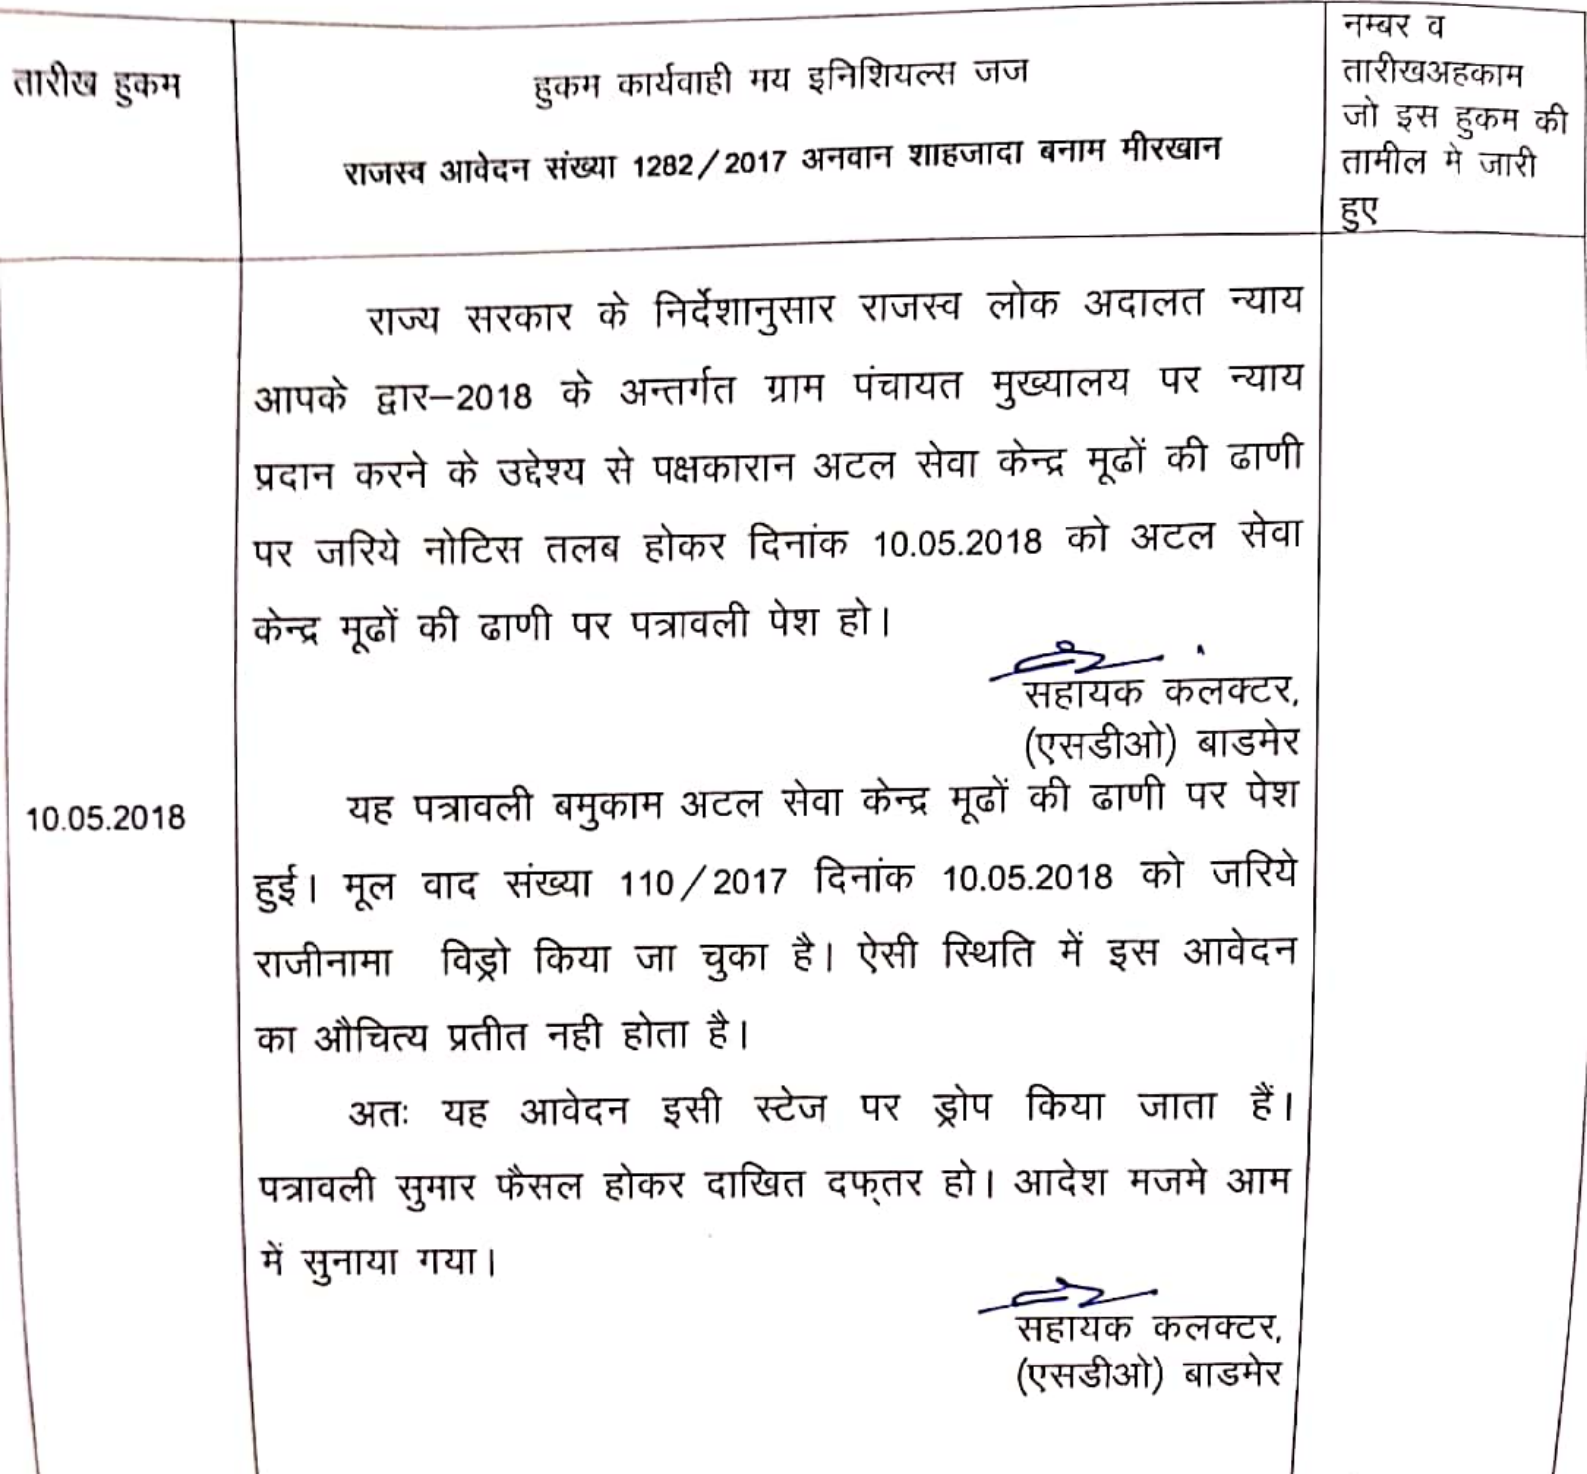 तारीख हुकम
हुकम कार्यवाही मय इनिशियल्स जज
राजस्व आवेदन संख्या 1282/2017 अनवान शाहजादा बनाम मीरखान
नम्बर व
तारीखअहकाम
जो इस हुकम की
तामील मे जारी
हुए
राज्य सरकार के निर्देशानुसार राजस्व लोक अदालत न्याय
आपके द्वार–2018 के अन्तर्गत ग्राम पंचायत मुख्यालय पर न्याय
प्रदान करने के उद्देश्य से पक्षकारान अटल सेवा केन्द्र मूढों की ढाणी
पर जरिये नोटिस तलब होकर दिनांक 10.05.2018 को अटल सेवा
केन्द्र मूढों की ढाणी पर पत्रावली पेश हो।
सहायक कलक्टर,
(एसडीओ) बाडमेर
10.05.2018
यह पत्रावली बमुकाम अटल सेवा केन्द्र मूढों की ढाणी पर पेश
हुई। मूल वाद संख्या 110/2017 दिनांक 10.05.2018 को जरिये
राजीनामा विड्रो किया जा चुका है। ऐसी स्थिति में इस आवेदन
का औचित्य प्रतीत नही होता है।
अतः यह आवेदन इसी स्टेज पर ड्रोप किया जाता हैं।
पत्रावली सुमार फैसल होकर दाखित दफ्तर हो। आदेश मजमे आम
में सुनाया गया।
सहायक कलक्टर,
(एसडीओ) बाडमेर